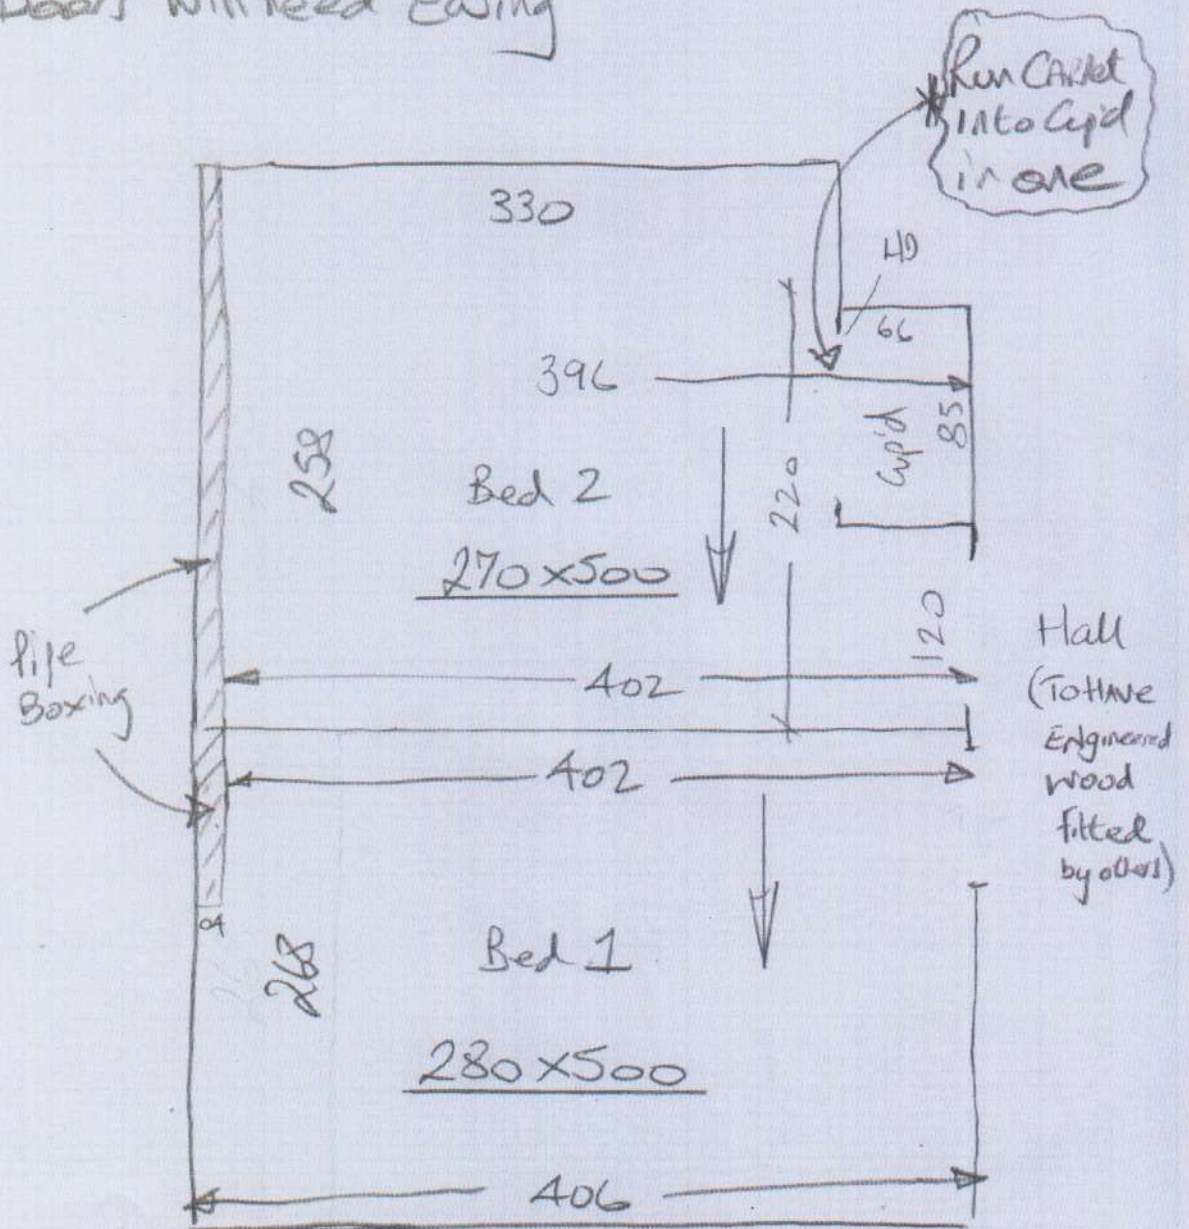 Doors will need Easing
Run CARPet
into Cup'd
in one
330
66
396
258
Bed 2
220
Cup'd
85
270x500
120
Hall
(To HAVE
Engineered
wood
fitted
by others)
Pipe
Boxing
402
402
268
Bed 1
280x500
406